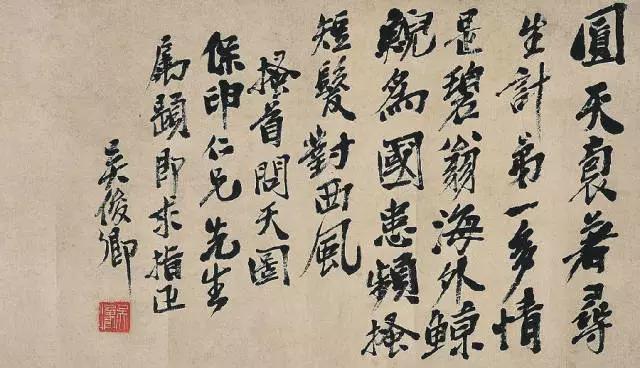 圓天裹著尋
生計第一多情
是碧翁海外鯨
鯢為國患頻搔
短髮對西風
搔首問天圖
保印仁兄先生
屬題即求指正
吳俊卿